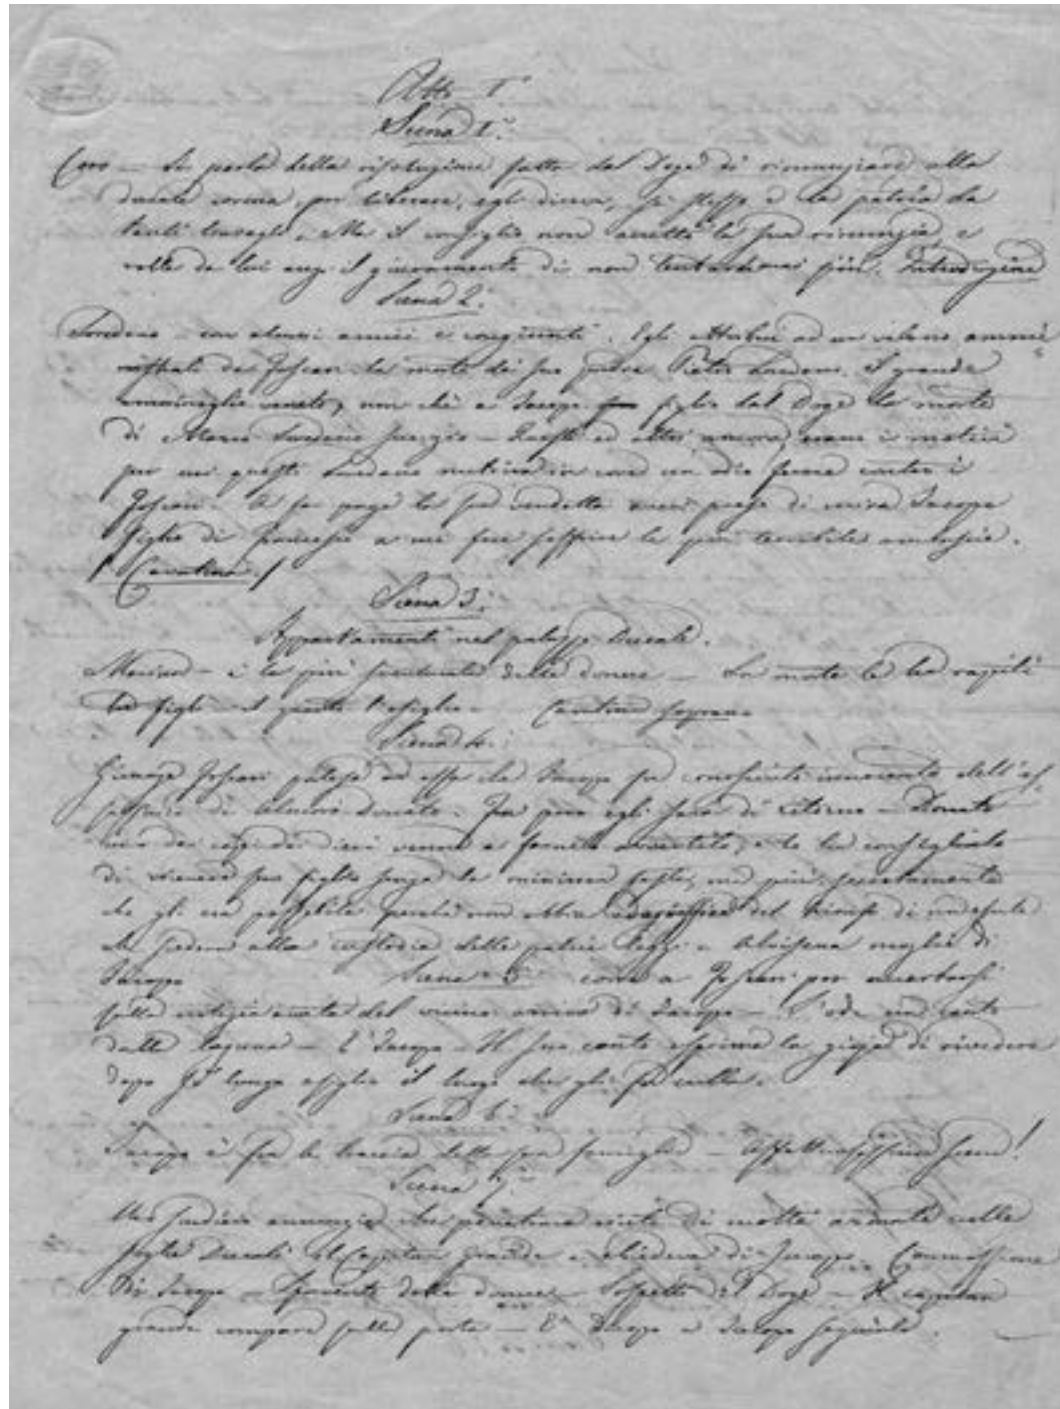 Atto I°
Scena 1.
Coro — Si parla della risoluzione fatta dal Doge di rinunziare alla
ducale corona, per liberare, egli diceva, se stesso e la patria da
tanti travagli. Ma il consiglio non accettò la sua rinunzia, e
volle da lui anzi il giuramento di non più. Introduzione
Scena 2.
Loredano con alcuni amici e congiunti. Egli ad un veleno
da Foscari la morte di suo padre Pietro Loredano, il grande
ammiraglio veneto, non che a Jacopo figlio del Doge la morte
di Marco Loredano suo zio — Questi ed altri ancora, erano i motivi
per cui questi Loredano nutriva in core un odio contro i
Foscari. A far paga la sua vendetta prese di mira Jacopo
figlio di Francesco a cui fece soffrire le più terribili ambascie.
/ Cavatina /
Scena 3.
Appartamenti nel palazzo Ducale.
Marina — è la più sventurata delle donne — La morte le ha rapiti
tre figli — il quarto l'esiglio. Cavatina soprano
Scena 4.
Foscari ad essa che Jacopo fu conosciuto innocente dell'as
sassinio di Almorò Donato. Fra poco egli sarà di ritorno — Donato
uno dei capi dei dieci venne a
di suo figlio senza la minima festa, ma più segretamente
che gli era possibile perché non del trionfo di un esule
alla custodia delle patrie leggi — moglie di
Jacopo Scena 5 corre a Foscari per accertarsi
sulla notizia del vicino arrivo di Jacopo — S'ode un canto
dalla laguna — È Jacopo — Il suo canto esprime la gioja di rivedere
dopo sì lungo esiglio il luogo che gli fu culla.
Scena 6.
Jacopo è fra le braccia della sua famiglia — Affettuosissima scena!
Scena 7.
Uno scudiere annunzia che
soglie Ducali il Capitan grande e chiedeva di Jacopo. Commozione
di Jacopo — Spavento delle donne — Sospetto del Doge — Il capitan
grande compare sulla porta — È d'uopo a Jacopo seguirlo.